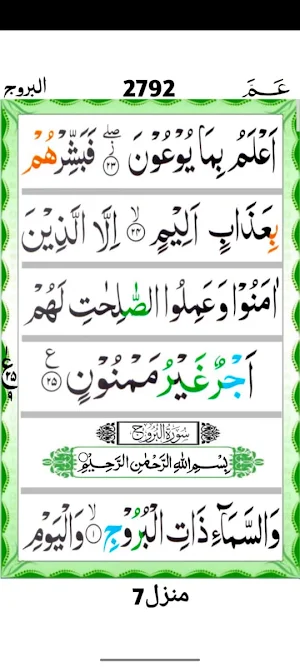 البروج 2792 عَمَّ
اَعْلَمُ بِمَا يُوْعُوْنَ ۖ۲۳ فَبَشِّرْهُمْ
بِعَذَابٍ اَلِيْمٍ ۙ۲۴ اِلَّا الَّذِيْنَ
اٰمَنُوْا وَعَمِلُوا الصّٰلِحٰتِ لَهُمْ
اَجْرٌ غَيْرُ مَمْنُوْنٍ ۲۵ ع
سُوْرَةُ الْبُرُوْجِ
بِسْمِ اللّٰهِ الرَّحْمٰنِ الرَّحِيْمِ
وَالسَّمَآءِ ذَاتِ الْبُرُوْجِ ۙ۱ وَالْيَوْمِ
منزل7